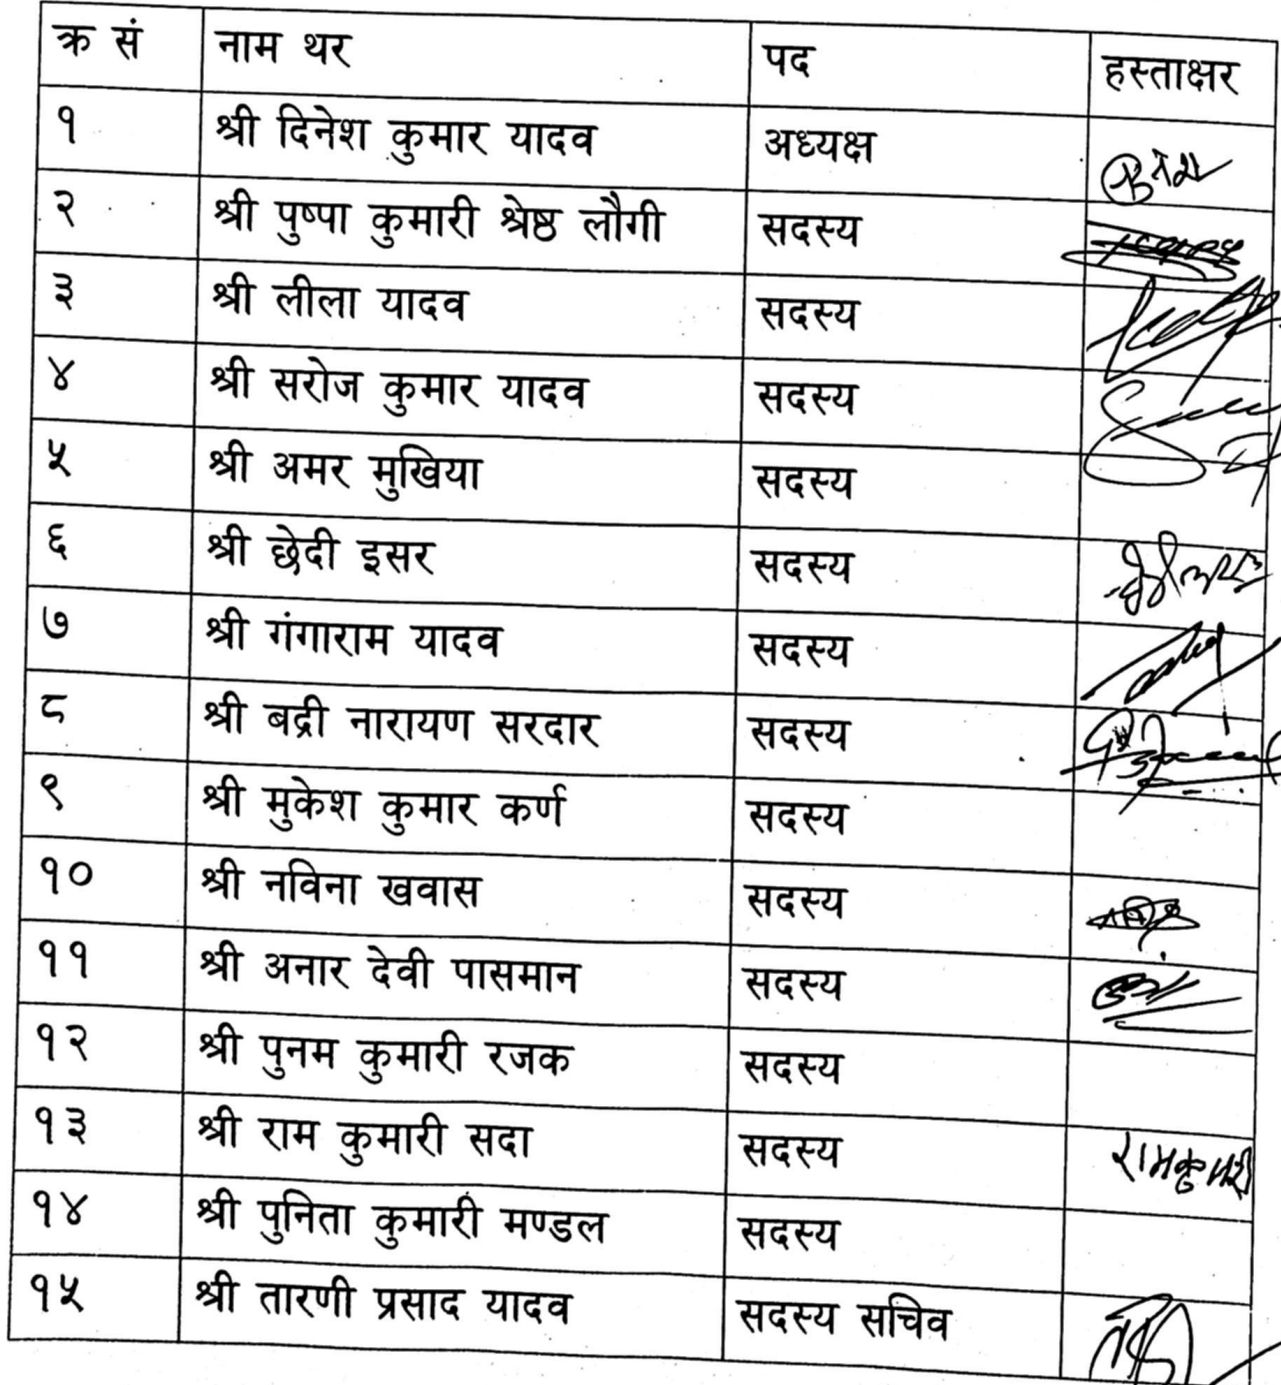 क्र सं नाम थर पद हस्ताक्षर
१ श्री दिनेश कुमार यादव अध्यक्ष
२ श्री पुष्पा कुमारी श्रेष्ठ लौगी सदस्य
३ श्री लीला यादव सदस्य
४ श्री सरोज कुमार यादव सदस्य
५ श्री अमर मुखिया सदस्य
६ श्री छेदी इसर सदस्य
७ श्री गंगाराम यादव सदस्य
८ श्री बद्री नारायण सरदार सदस्य
९ श्री मुकेश कुमार कर्ण सदस्य
१० श्री नविना खवास सदस्य
११ श्री अनार देवी पासमान सदस्य
१२ श्री पुनम कुमारी रजक सदस्य
१३ श्री राम कुमारी सदा सदस्य रामकुमारी
१४ श्री पुनिता कुमारी मण्डल सदस्य
१५ श्री तारणी प्रसाद यादव सदस्य सचिव